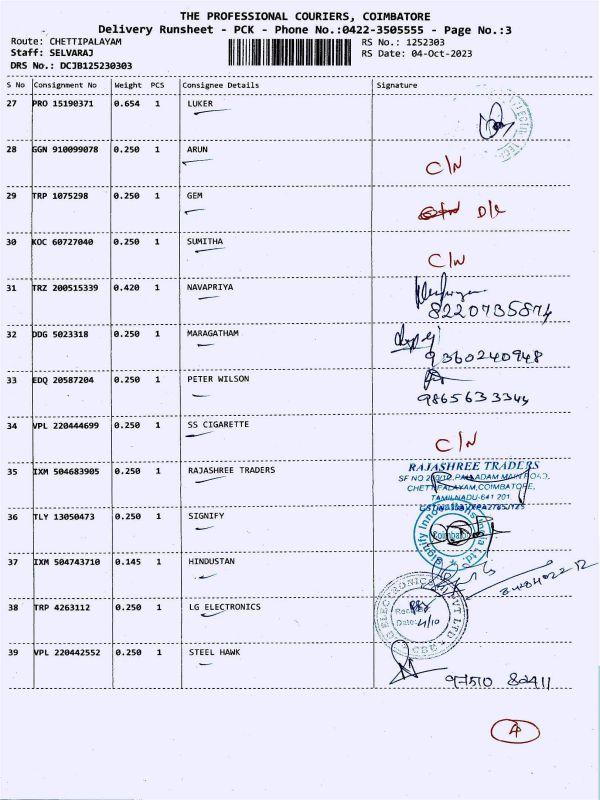 THE PROFESSIONAL COURIERS, COIMBATORE
Delivery Runsheet - PCK - Phone No.:0422-3505555 - Page No.:3
Route: CHETTIPALAYAM RS No.: 1252303
Staff: SELVARAJ RS Date: 04-Oct-2023
DRS No.: DCJB125230303
S No Consignment No Weight PCS Consignee Details Signature
27 PRO 15190371 0.654 1 LUKER
28 GGN 910099078 0.250 1 ARUN C/N
29 TRP 1075298 0.250 1 GEM D/L
30 KOC 60727040 0.250 1 SUMITHA C/N
31 TRZ 200515339 0.420 1 NAVAPRIYA
8220735874
32 DDG 5023318 0.250 1 MARAGATHAM
9360240948
33 EDQ 20587204 0.250 1 PETER WILSON
9865633344
34 VPL 220444699 0.250 1 SS CIGARETTE C/N
35 IXM 504683905 0.250 1 RAJASHREE TRADERS RAJASHREE TRADERS
SF NO PALLADAM MAIN ROAD,
CHETTIPALAYAM, COIMBATORE,
TAMILNADU-641 201.
36 TLY 13050473 0.250 1 SIGNIFY Signify Innovations India Ltd. Coimbatore
37 IXM 504743710 0.145 1 HINDUSTAN
38 TRP 4263112 0.250 1 LG ELECTRONICS
Date: 4/10
39 VPL 220442552 0.250 1 STEEL HAWK
97510 82411
4